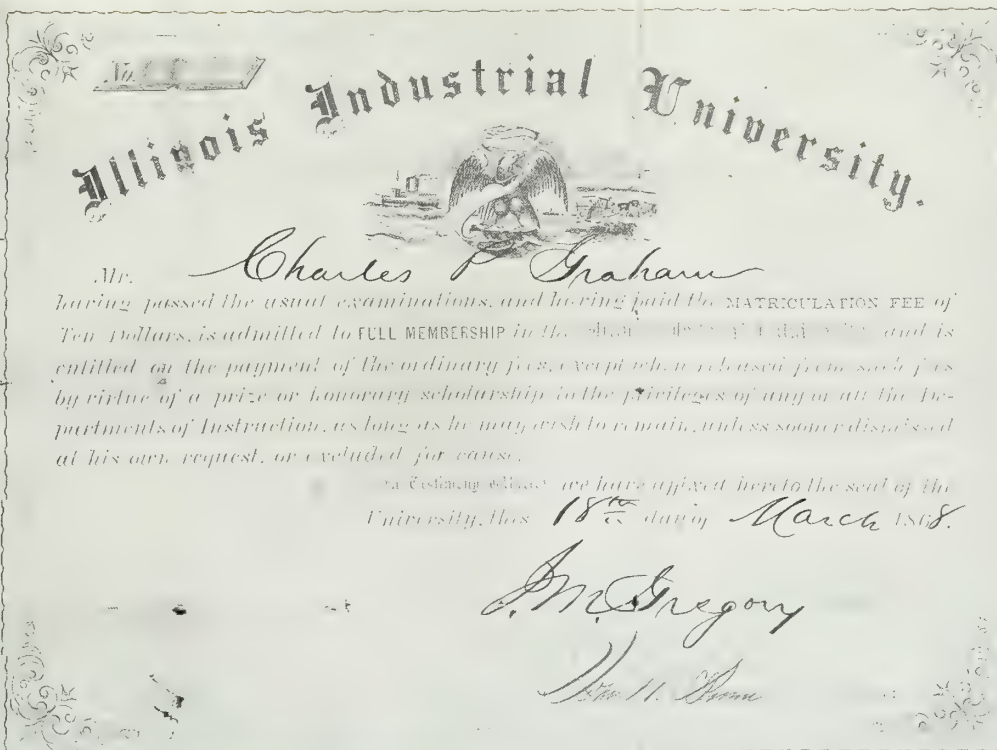 No.
Illinois Industrial University.
Mr. Charles P Graham
having passed the usual examinations, and having paid the MATRICULATION FEE of
Ten Dollars, is admitted to FULL MEMBERSHIP in the and is
entitled on the payment of the ordinary fees, except when released from such fees
by virtue of a prize or honorary scholarship to the privileges of any or all the De-
partments of Instruction, as long as he may wish to remain, unless sooner dismissed
at his own request, or excluded for cause.
we have affixed hereto the seal of the
University, this 18th day of March 1868.
J. M. Gregory